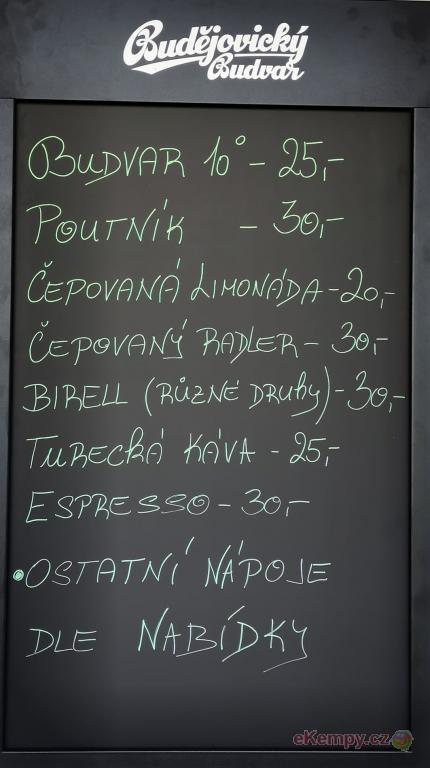 Budějovický
Budvar
BUDVAR 10° - 25,-
POUTNÍK - 30,-
ČEPOVANÁ LIMONÁDA - 20,-
ČEPOVANÝ RADLER - 30,-
BIRELL (RŮZNÉ DRUHY) - 30,-
TURECKÁ KÁVA - 25,-
ESPRESSO - 30,-
• OSTATNÍ NÁPOJE
DLE NABÍDKY
eKempy.cz